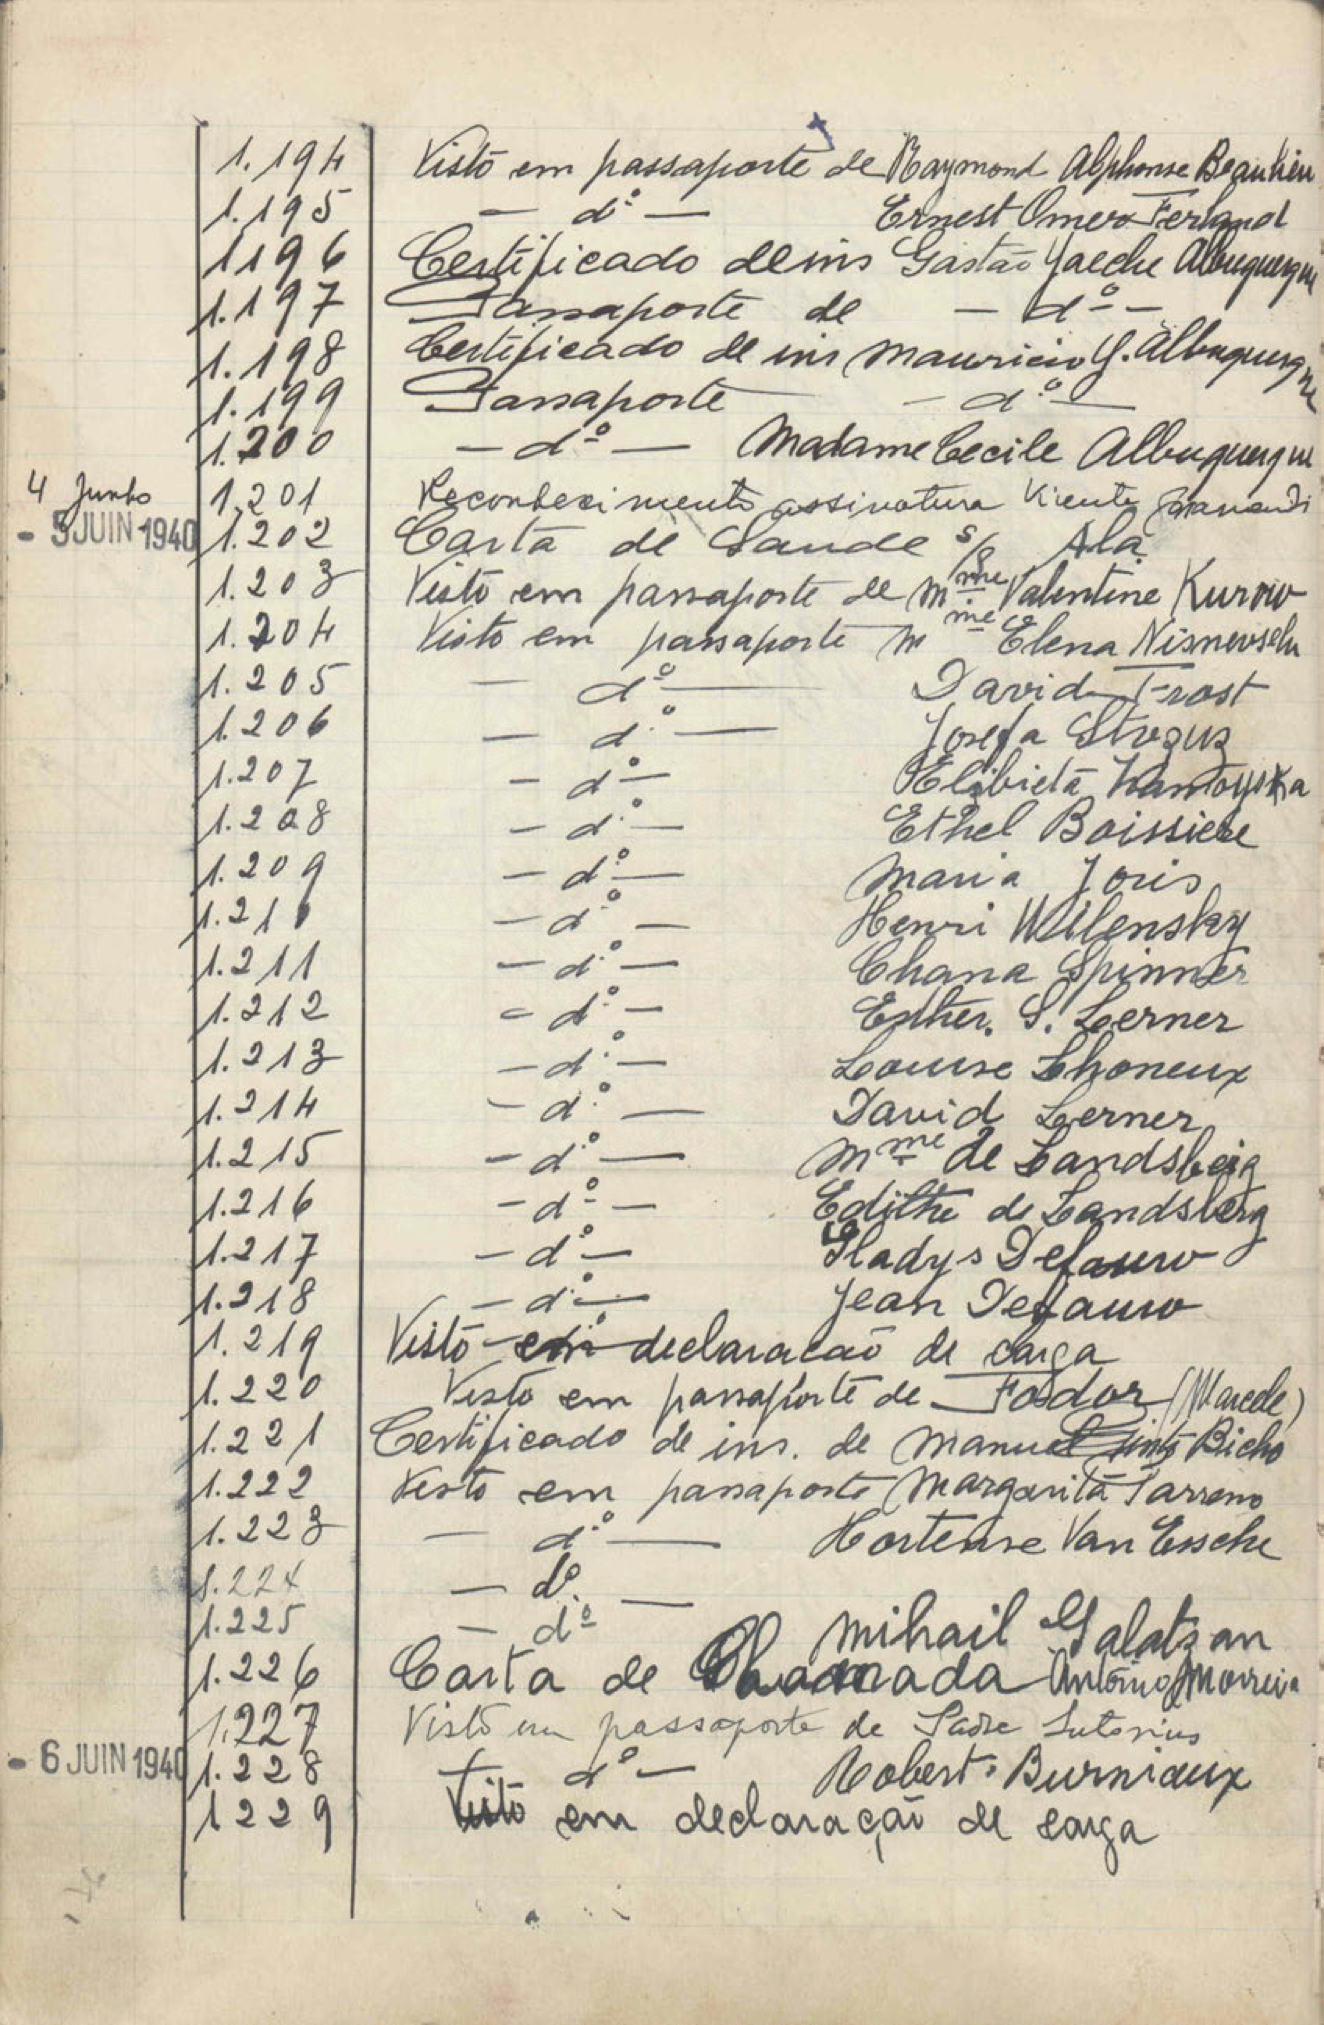 1.194 Visto em passaporte de Raymond Alphonse Beaulieu
1.195 — dº — Ernest Omer Ferland
1196 Certificado de ins Gastão Jaeche Albuquerque
1.197 Passaporte de — dº —
1.198 Certificado de ins Mauricio J. Albuquerque
1.199 Passaporte — dº —
1.200 — dº — Madame Cecile Albuquerque
4 Junho 1.201 Reconhecimento assinatura Vicente
- 5 JUIN 1940 1.202 Carta de Saude s/ Ala
1.203 Visto em passaporte de Mme Valentine Kurow
1.204 Visto em passaporte Mme Elena
1.205 — dº — David Frost
1.206 — dº — Josefa
1.207 — dº —
1.208 — dº — Ethel Boissiere
1.209 — dº — Maria Joris
1.210 — dº — Henri Wilensky
1.211 — dº — Chana Spinner
1.212 — dº — Esther. S. Lerner
1.213 — dº — Louise Lhoneux
1.214 — dº — David Lerner
1.215 — dº — Mme de Landsberg
1.216 — dº — Edithe de Landsberg
1.217 — dº — Gladys Defauw
1.218 — dº — Jean Defauw
1.219 Visto em declaracão de carga
1.220 Visto em passaporte de Fodor (Marcele)
1.221 Certificado de ins. de Manuel Bicho
1.222 Visto em passaporte Margarita
1.223 — dº — Hortense Van Essche
1.224 — dº. —
1.225 — dº Mihail Galatzan
1.226 Carta de Chamada Antonio Moreira
1.227 Visto em passaporte de Padre
- 6 JUIN 1940 1.228 — dº — Robert Burniaux
1229 Visto em declaração de carga